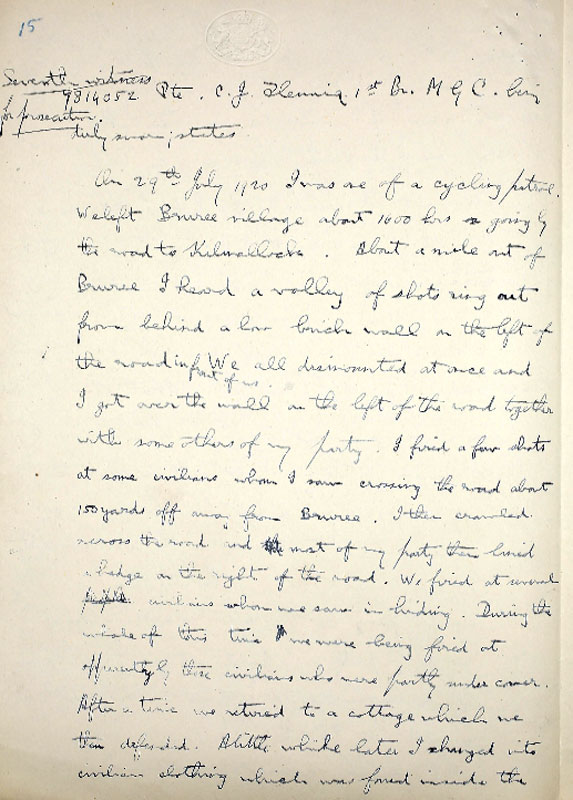 15
Seventh witness
for prosecution.
9814052 Pte. C. J. 1st Bn. M G C. being
duly sworn, states
On 29th July 1920 I was one of a cycling patrol.
We left Bruree village about 1600 hrs going by
the road to Kilmallock. About a mile out of
Bruree I heard a volley of shots ring out
from behind a low brick wall on the left of
the road in front of us. We all dismounted at once and
I got over the wall on the left of the road together
with some others of my party. I fired a few shots
at some civilians whom I saw crossing the road about
150 yards off away from Bruree. I then crawled
across the road and most of my party then lined
a hedge on the right of the road. We fired at several
civilians whom we saw in hiding. During the
whole of this time we were being fired at
apparently by these civilians who were partly under cover.
After a time we retired to a cottage which we
then defended. A little while later I changed into
civilian clothing which was found inside the